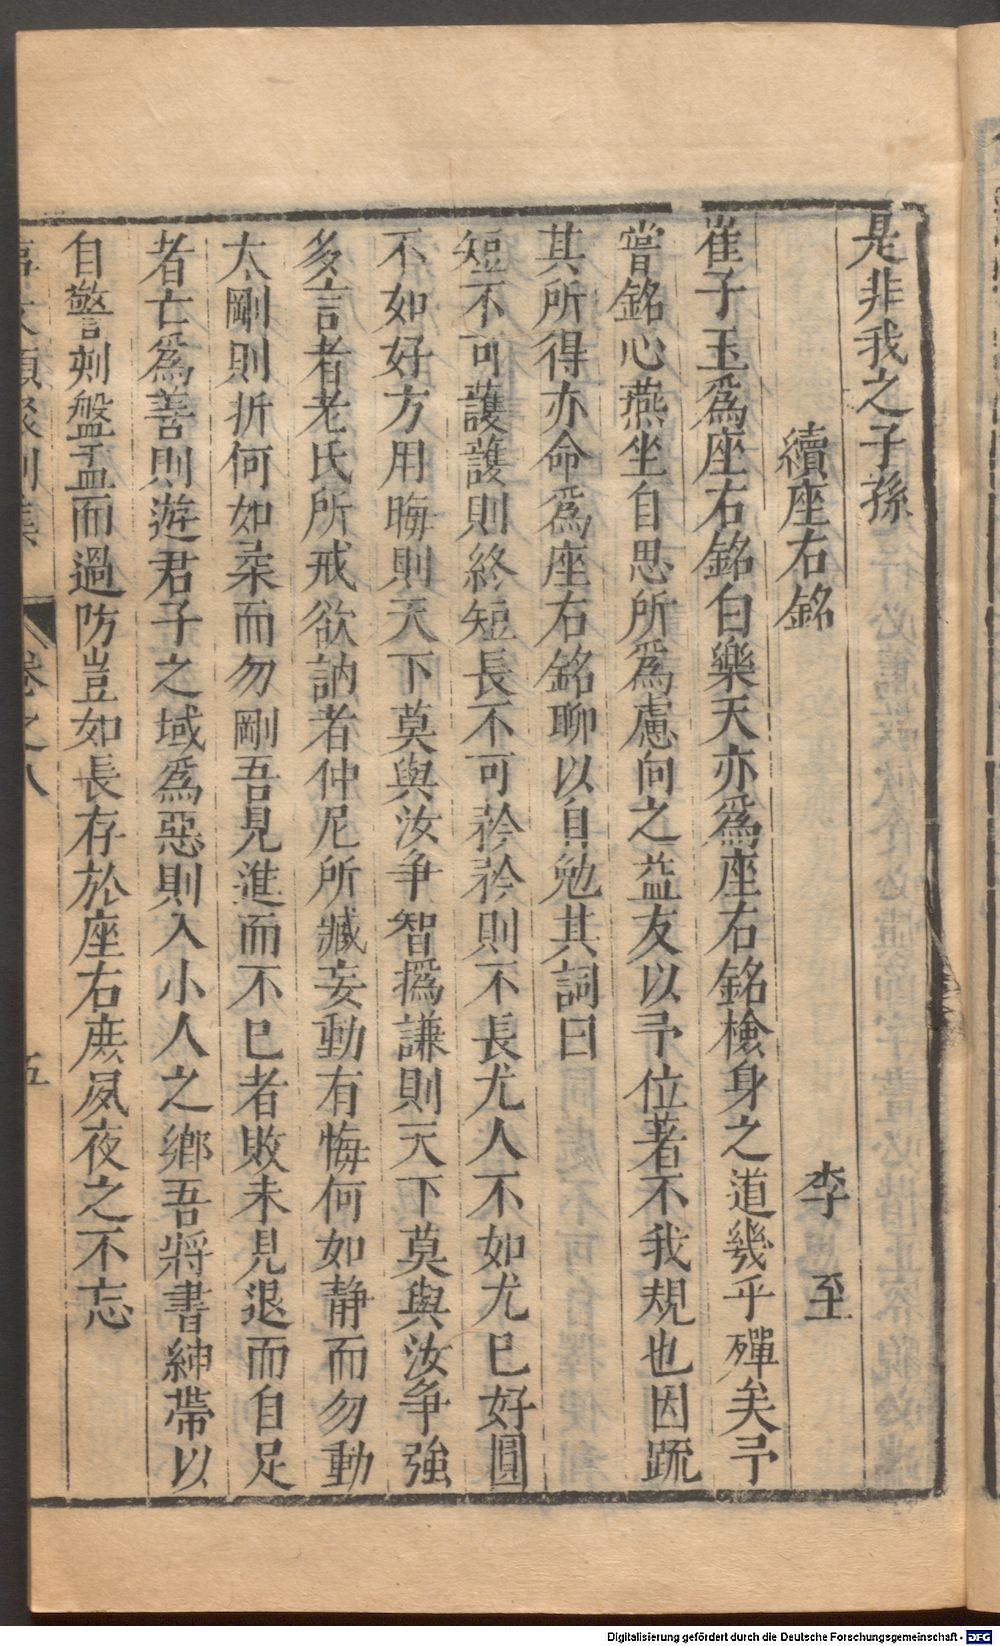 是非我之子孫
續座右銘 李至
崔子玉爲座右銘白樂天亦爲座右銘檢身之道幾乎殫矣予
嘗銘心燕坐自思所爲慮向之益友以予位著不我規也因疏
其所得亦命爲座右銘聊以自勉其詞曰
短不可護護則終短長不可矜矜則不長尤人不如尤已好圓
不如好方用晦則天下莫與汝争智撝謙則天下莫與汝争強
多言者老氏所戒欲訥者仲尼所臧妄動有悔何如静而勿動
太剛則折何如柔而勿剛吾見進而不已者敗未見退而自足
者亡爲善則遊君子之域爲惡則入小人之鄉吾將書紳帶以
自警刻盤盂而過防豈如長存於座右庶夙夜之不忘
卷之八 五
Digitalisierung gefördert durch die Deutsche Forschungsgemeinschaft - DFG